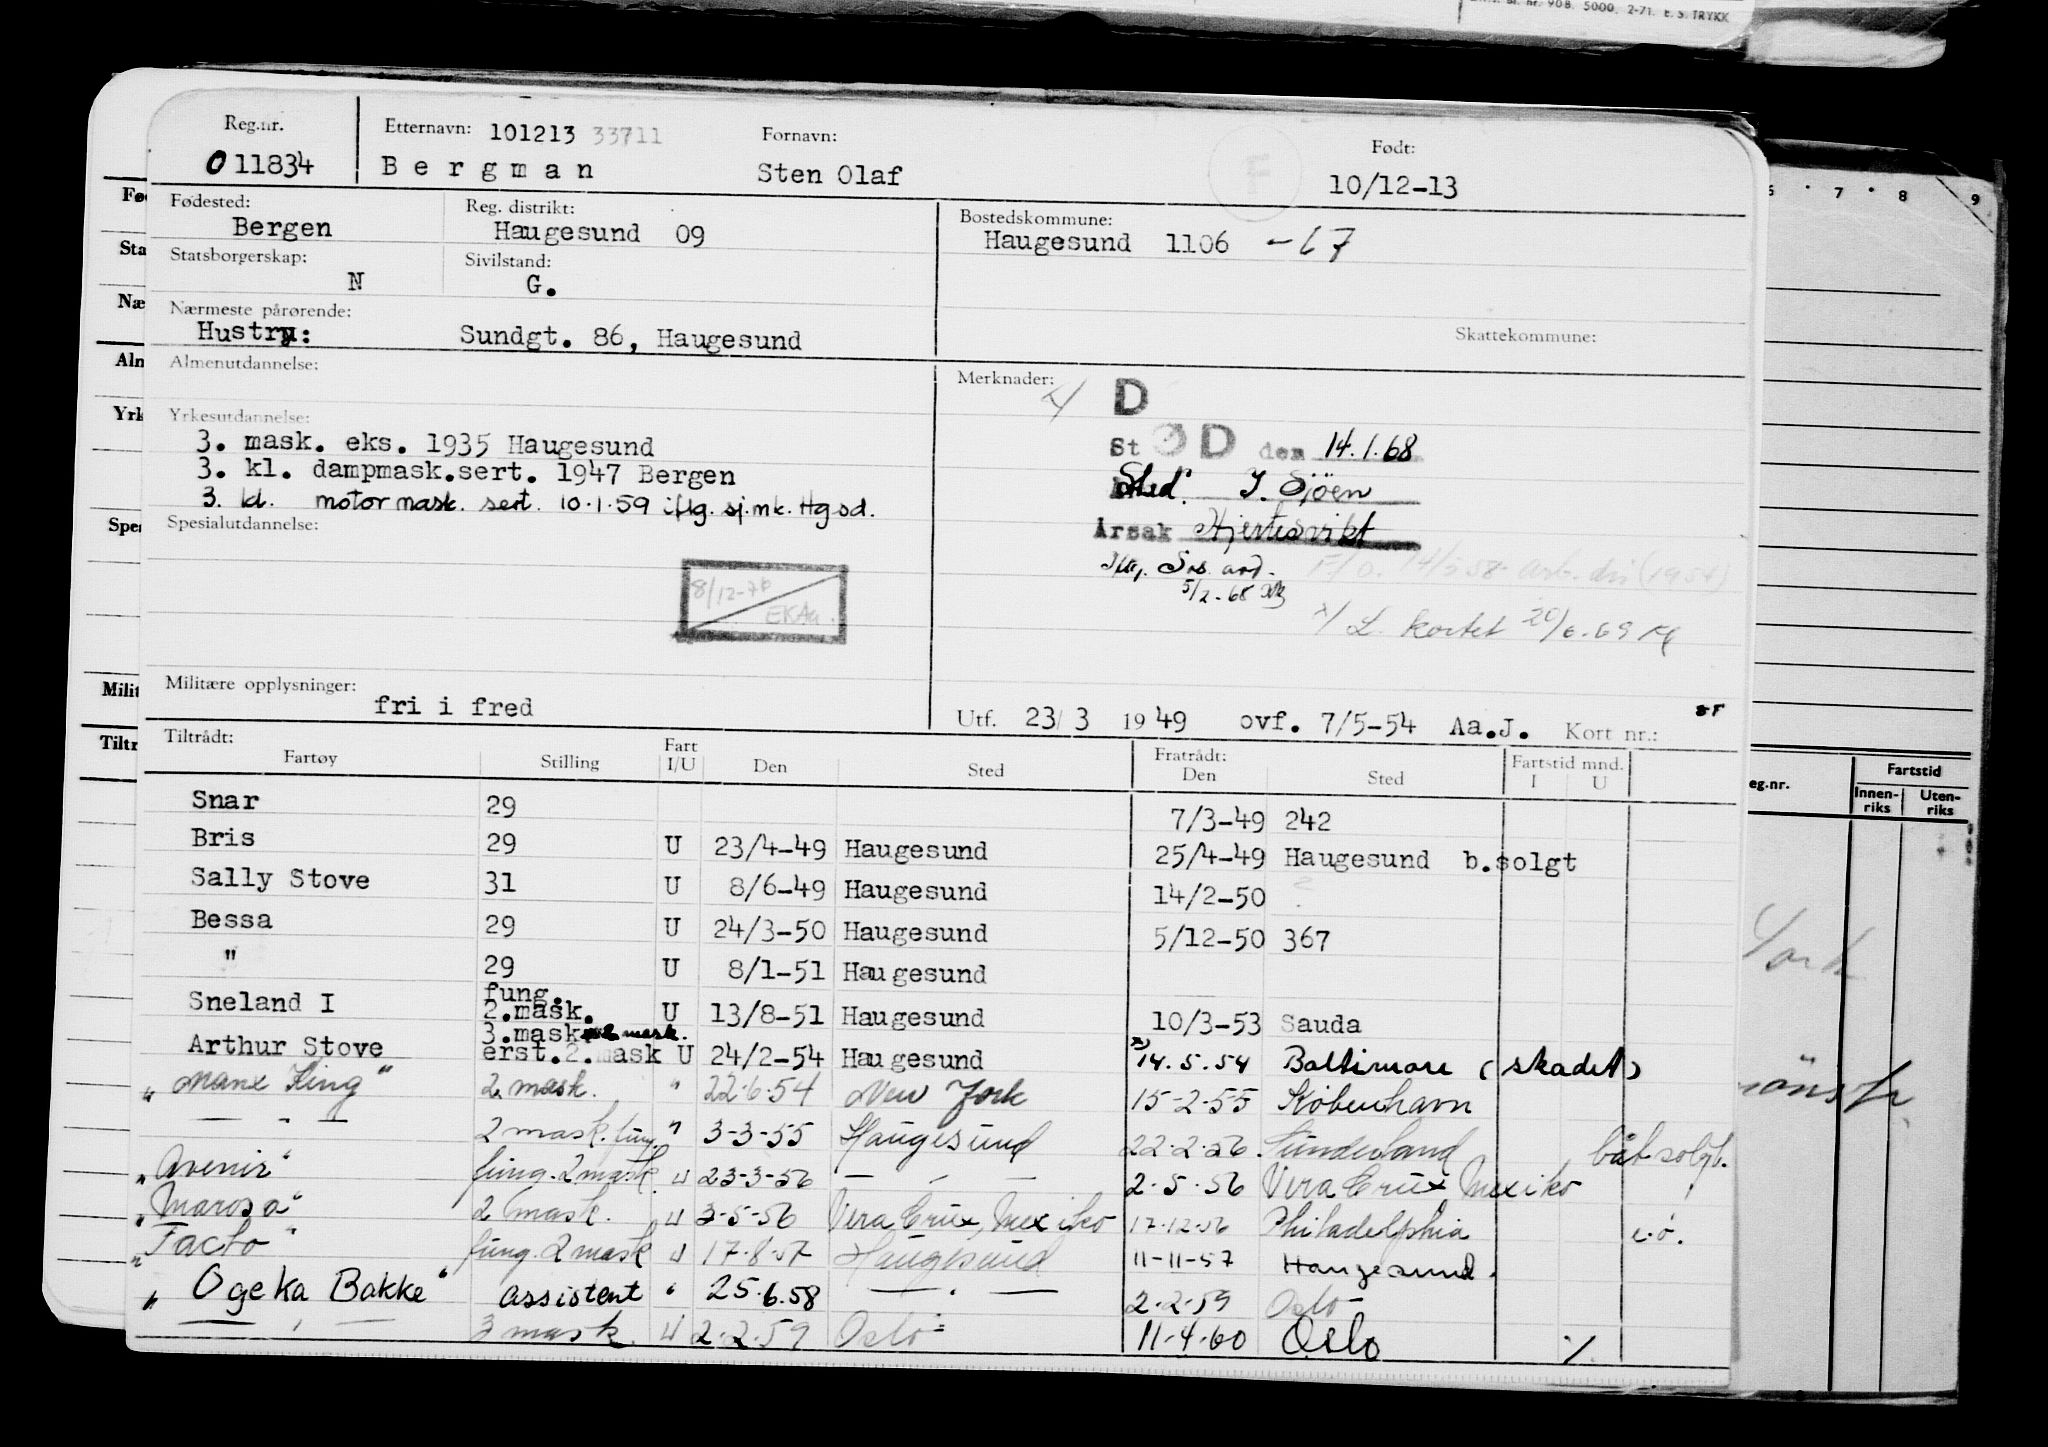 908. 5000. 2-71. E. S. TRYKK
Reg.nr. Etternavn: 101213 33711 Fornavn: Født:
011834 Bergman Sten Olaf F 10/12-13
Fødested: Reg. distrikt: Bostedskommune:
Bergen Haugesund 09 Haugesund 1106 -67
Statsborgerskap: Sivilstand:
N G.
Nærmeste pårørende:
Hustru: Sundgt. 86, Haugesund Skattekommune:
Almenutdannelse: Merknader:
D
Yrkesutdannelse:
3. mask. eks. 1935 Haugesund St Ø D den 14.1.68
3. kl. dampmask.sert. 1947 Bergen Sted. I. Sjøen
3. kl. motor mask. sert. 10.1.59 iflg. sj.mk. Hgsd.
Spesialutdannelse: Årsak Hjertesvikt
5/2-68
8/12-70 EKAa.
x/ L. kortet 20/6.69
Militære opplysninger:
fri i fred Utf. 23/3 1949 ovf. 7/5-54 Aa.J. Kort nr.:
Tiltrådt: Fart Fratrådt: Fartstid mnd.
Fartøy Stilling I/U Den Sted Den Sted I U
Snar 29 7/3-49 242
Bris 29 U 23/4-49 Haugesund 25/4-49 Haugesund b.solgt
Sally Stove 31 U 8/6-49 Haugesund 14/2-50
Bessa 29 U 24/3-50 Haugesund 5/12-50 367
" 29 U 8/1-51 Haugesund
fung.
Sneland I 2.mask. U 13/8-51 Haugesund 10/3-53 Sauda
3.mask mask.
Arthur Stove erst.2.mask U 24/2-54 Haugesund x) 14.5.54 Baltimore (skadet)
"Manx King" 2 mask. " 22.6.54 New York 15-2-55 København
— " — 2 mask. fung. " 3-3-55 Haugesund 22-2-56 Sunderland båt solgt.
"Avenir" fung. 2 mask. U 23-3-56 — " — 2.5.56 Vera Crux Mexiko
"Marosa" 2 mask. U 3-5-56 Vera Crux, Mexiko 17.12.56 Philadelphia e.ø.
"Facto" fung. 2 mask U 17.8.57 Haugesund 11-11-57 Haugesund.
"Ogeka Bakke" assistent " 25.6.58 — " — 2.2.59 Oslo
— " — 3 mask. U 2.2.59 Oslo 11.4.60 Oslo ./.
6 7 8 9
eg.nr. Fartstid
Innen-riks Uten-riks
York